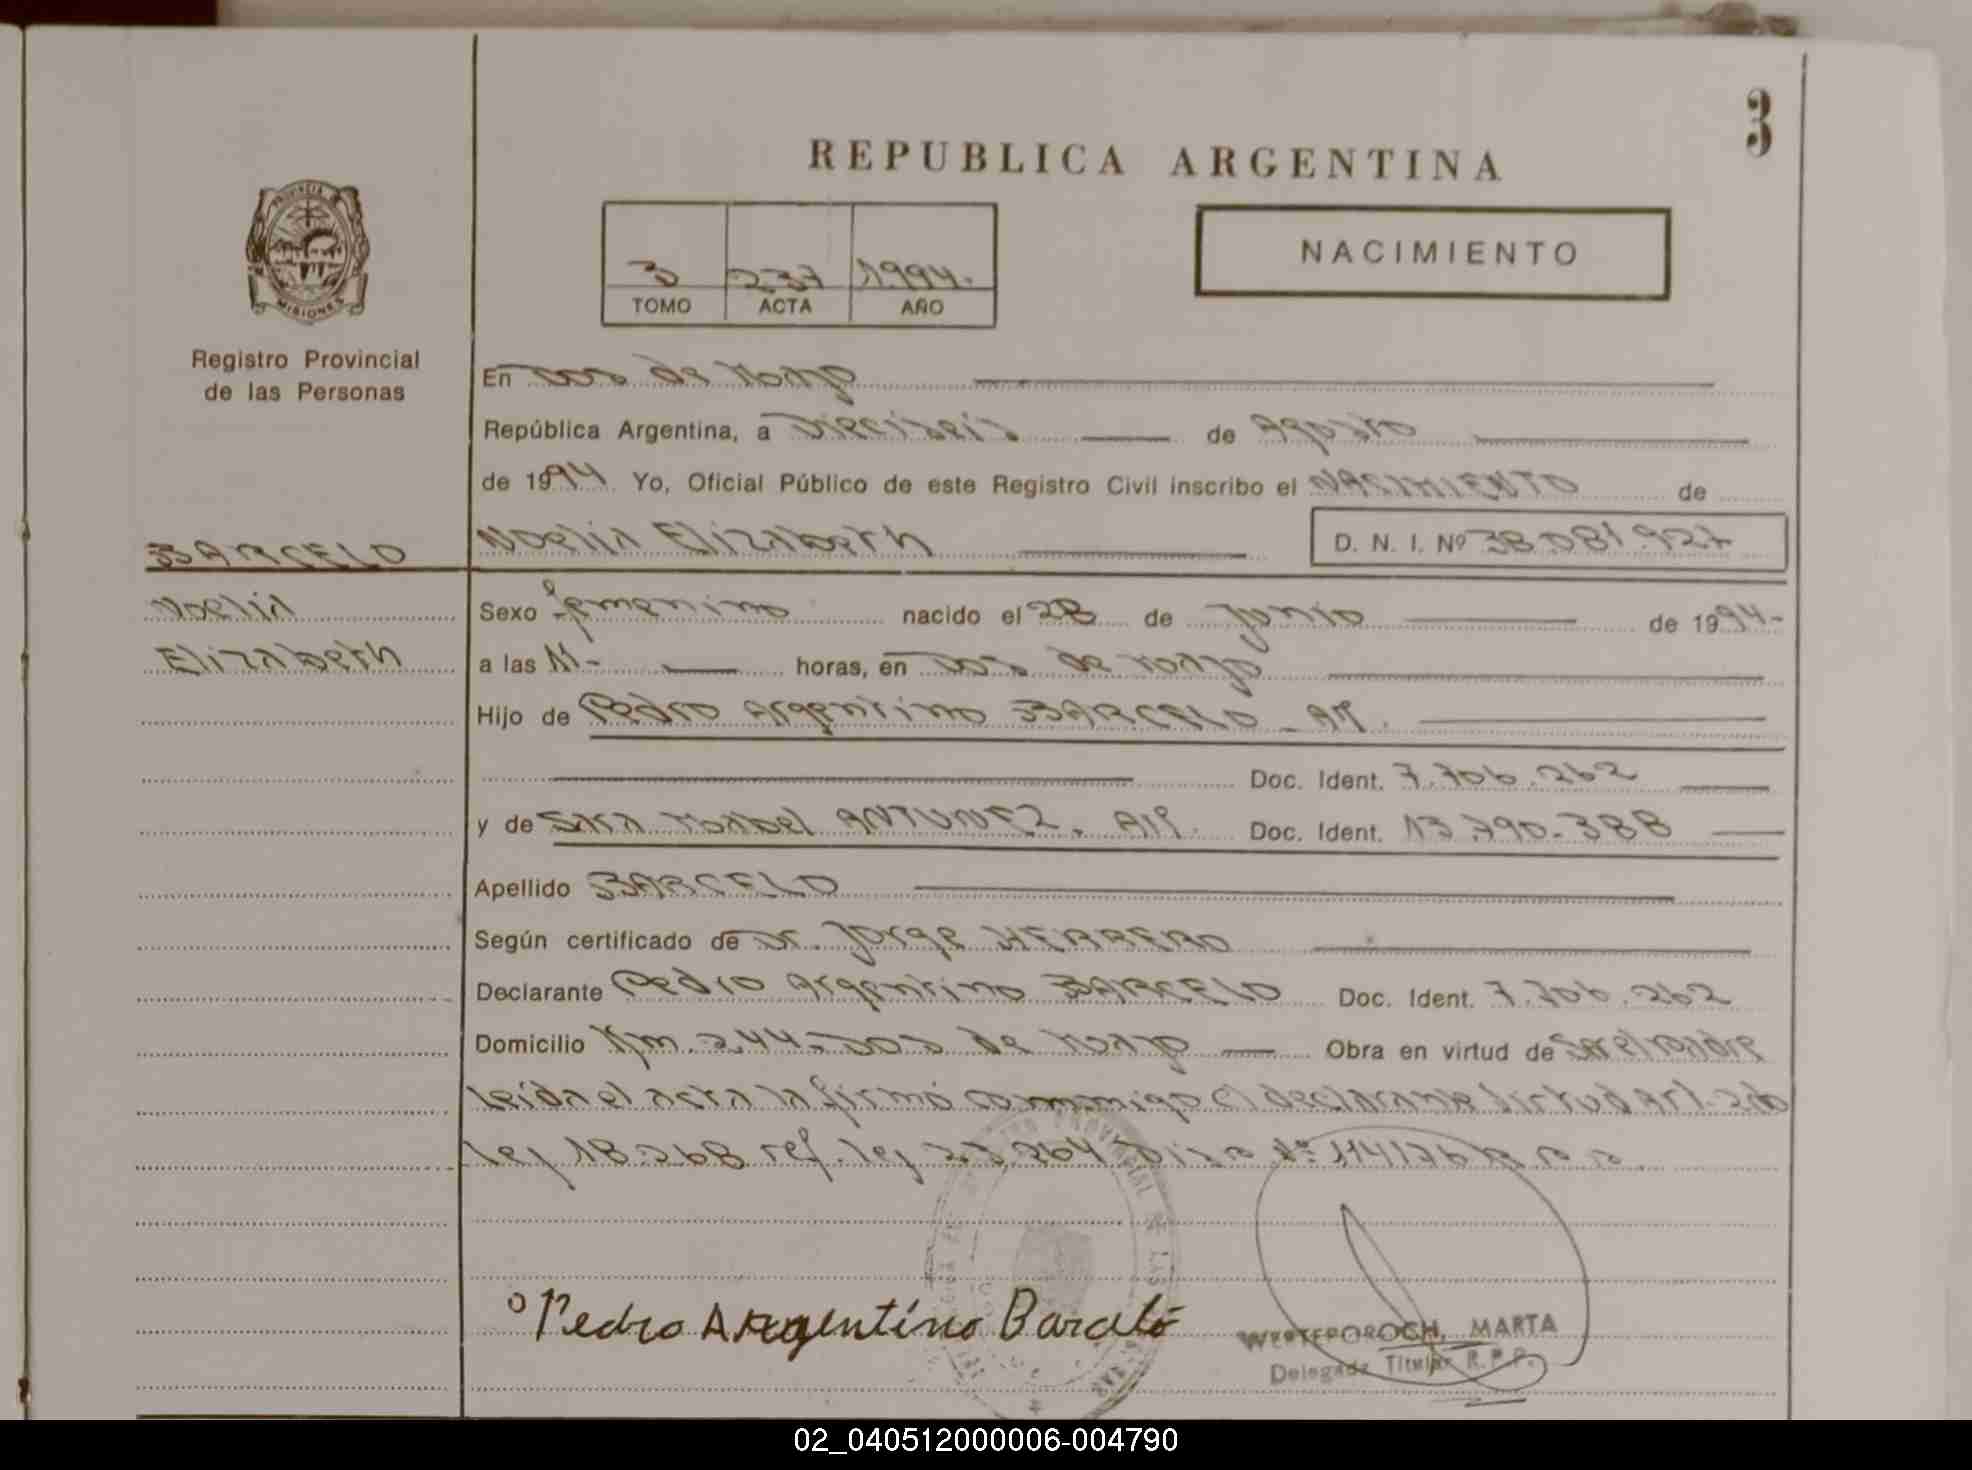 3
REPUBLICA ARGENTINA
PROVINCIA DE
MISIONES
3 237 1994.-
TOMO ACTA AÑO
NACIMIENTO
Registro Provincial
de las Personas
En Dos de Mayo
República Argentina, a Dieciseis de Agosto
de 1994 Yo, Oficial Público de este Registro Civil inscribo el NACIMIENTO de
BARCELO
Noelia Elizabeth D. N. I. Nº 38.081.927
Noelia
Elizabeth
Sexo femenino nacido el 28 de Junio de 1994-
a las 11- horas, en Dos de Mayo
Hijo de Pedro Argentino BARCELO - AR.
Doc. Ident. 7.706.262
y de Sara Mabel ANTUNEZ. AR. Doc. Ident. 13.790.388
Apellido BARCELO
Según certificado de Dr. Jorge HERRERO
Declarante Pedro Argentino BARCELO Doc. Ident. 7.706.262
Domicilio Km. 244-Dos de Mayo Obra en virtud de Ser el padre
Leida el acta la firmó conmigo el declarante Virtud Art. 2do
Ley 18.268 ref. ley 23.264 Disp. Nº 114/76 R.P.P.
Pedro Argentino Barceló
WERTEPOROCH, MARTA
Delegada Titular R.P.P.
02_040512000006-004790